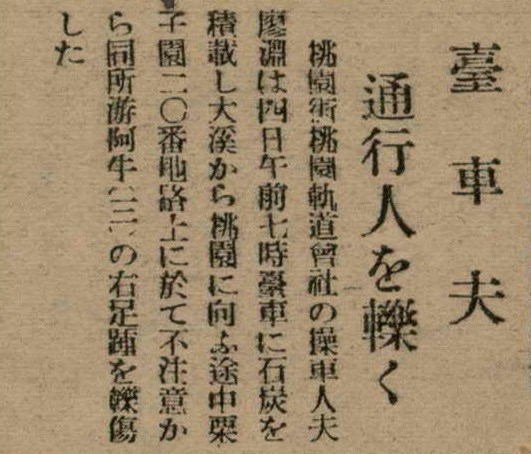 臺車夫
通行人を轢く
桃園街桃園軌道會社の操車人夫
廖淵は四日午前七時臺車に石炭を
積載し大溪から桃園に向ふ途中栗
子園二〇番地路上に於て不注意か
ら同所游阿牛(三)の右足踵を轢傷
した